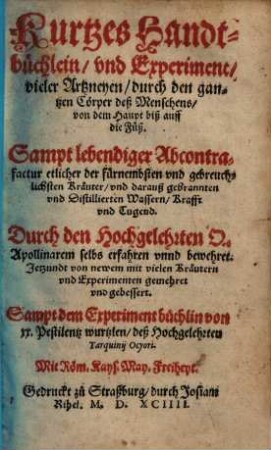 Kurtzes Handt-
büchlein/ vnd Experiment/
vieler Artzneyen/ durch den gan-
tzen Cörper deß Menschens/
von dem Haupt biß auff
die Füß.
Sampt lebendiger Abcontra-
factur etlicher der fürnembsten vnd gebreuch-
lichsten Kräuter/ vnd darauß gebrannten
vnd Distillierten Wassern/ Krafft
vnd Tugend.
Durch den Hochgelehrten Q.
Apollinarem selbs erfahren vnnd bewehret.
Jetzundt von newem mit vielen Kräutern
vnd Experimenten gemehret
vnd gebessert.
Sampt dem Experiment büchlin von
xx. Pestilentz wurtzlen/ deß Hochgelehrten
Tarquinij Ocyori.
Mit Röm. Kays. May. Freiheyt.
Gedruckt zů Straßburg/ durch Josiam
Rihel. M. D. XCIIII.